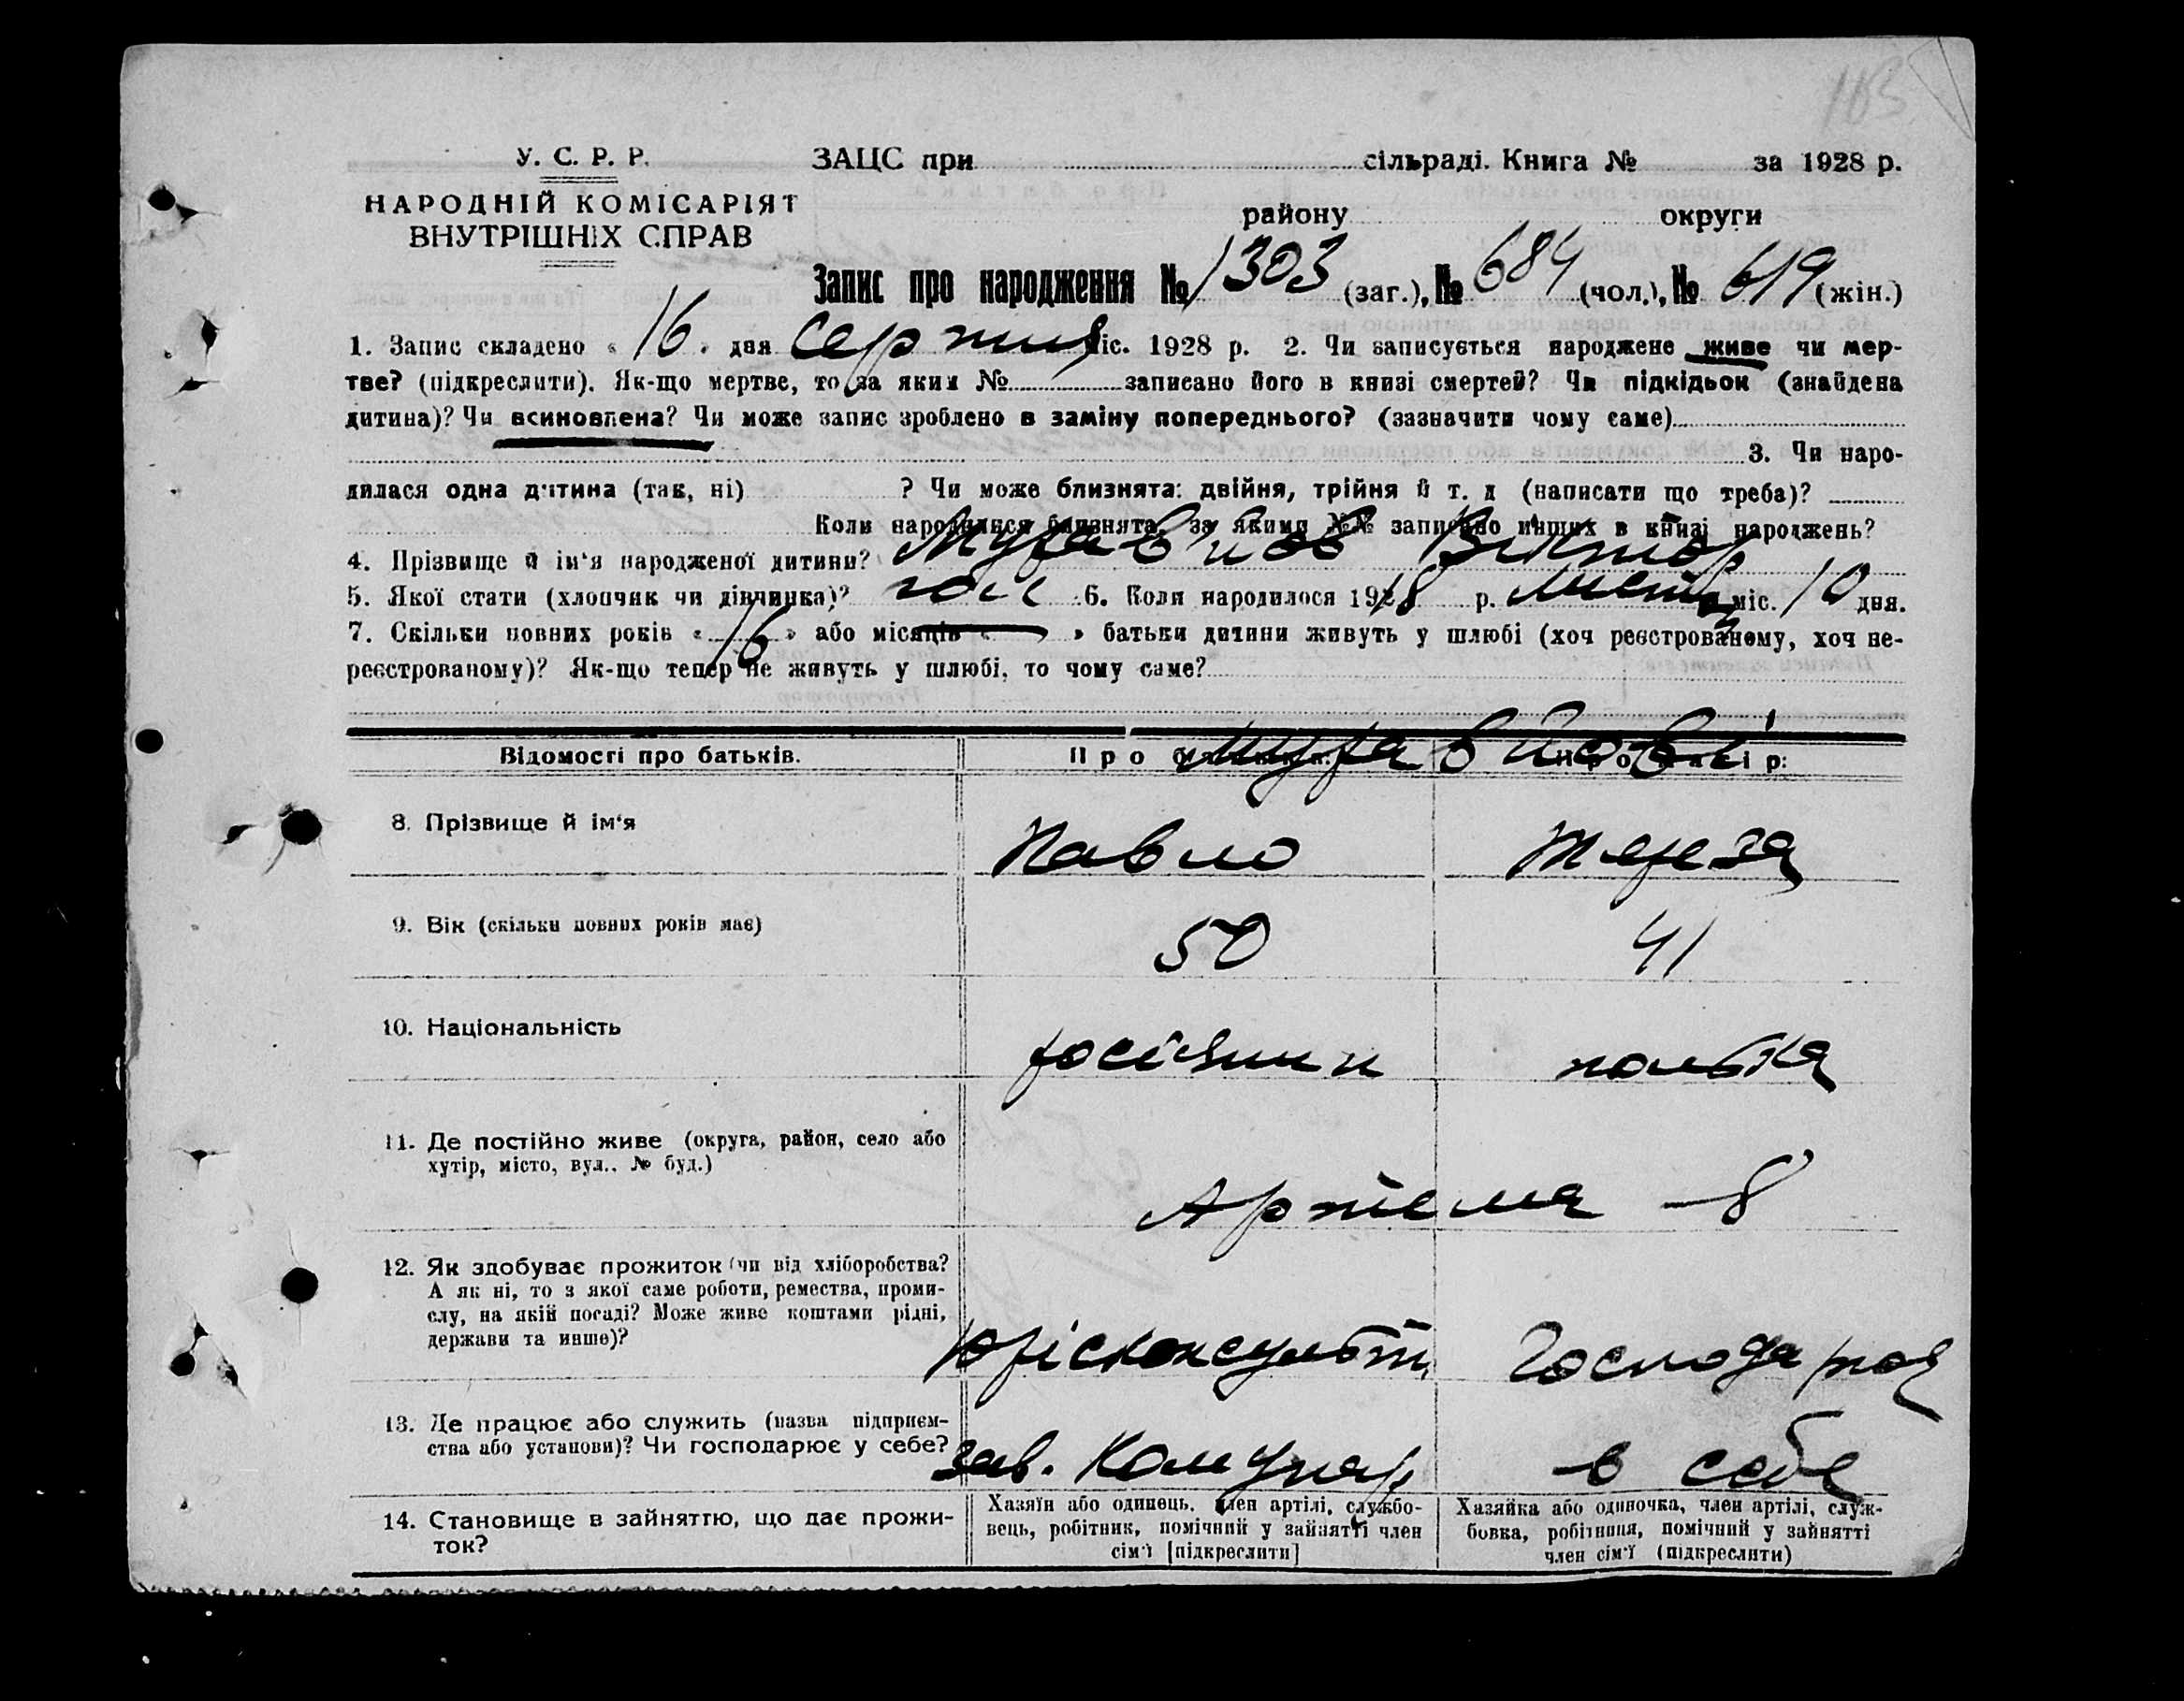 165
У. С. Р. Р. ЗАЦС при сільраді. Книга № за 1928 р.
НАРОДНІЙ КОМІСАРІЯТ
району округи
ВНУТРІШНІХ СПРАВ
Запис про народження № 1303 (заг.), № 684 (чол.), № 619 (жін.)
1. Запис складено « 16 » дня серпня міс. 1928 р. 2. Чи записується народжене живе чи мер-
тве? (підкреслити). Як-що мертве, то за яким № записано його в книзі смертей? Чи підкідьок (знайдена
дитина)? Чи всиновлена? Чи може запис зроблено в заміну попереднього? (зазначити чому саме)
3. Чи наро-
дилася одна дитина (так, ні) ? Чи може близнята: двійня, трійня й т. д (написати що треба)?
Коли народилися близнята, за якими №№ записано инших в книзі народжень?
4. Прізвище й ім'я народженої дитини? Муравйов Віктор
5. Якої стати (хлопчик чи дівчинка)? чол 6. Коли народилося 1918 р. листоп міс. 10 дня.
7. Скільки повних років « 16 » або місяців « — » батьки дитини живуть у шлюбі (хоч реєстрованому, хоч не-
реєстрованому)? Як-що тепер не живуть у шлюбі, то чому саме?
Муравйови
Відомості про батьків. Про батька: Про матір:
8. Прізвище й ім'я Павло Тереза
9. Вік (скільки повних років має) 50 41
10. Національність росіянин полька
11. Де постійно живе (округа, район, село або
хутір, місто, вул., № буд.)
Артема - 8
12. Як здобуває прожиток (чи від хліборобства?
А як ні, то з якої саме роботи, ремества, проми-
слу, на якій посаді? Може живе коштами рідні,
держави та инше)?
Юрісконсульт Господарка
13. Де працює або служить (назва підприєм-
ства або установи)? Чи господарює у себе?
зав. Комунар в себе
14. Становище в зайняттю, що дає прожи-
ток?
Хазяїн або одинець, член артілі, службо-
вець, робітник, помічний у зайнятті член
сім'ї [підкреслити]
Хазяйка або одиночка, член артілі, служ-
бовка, робітниця, помічний у зайнятті
член сім'ї (підкреслити)